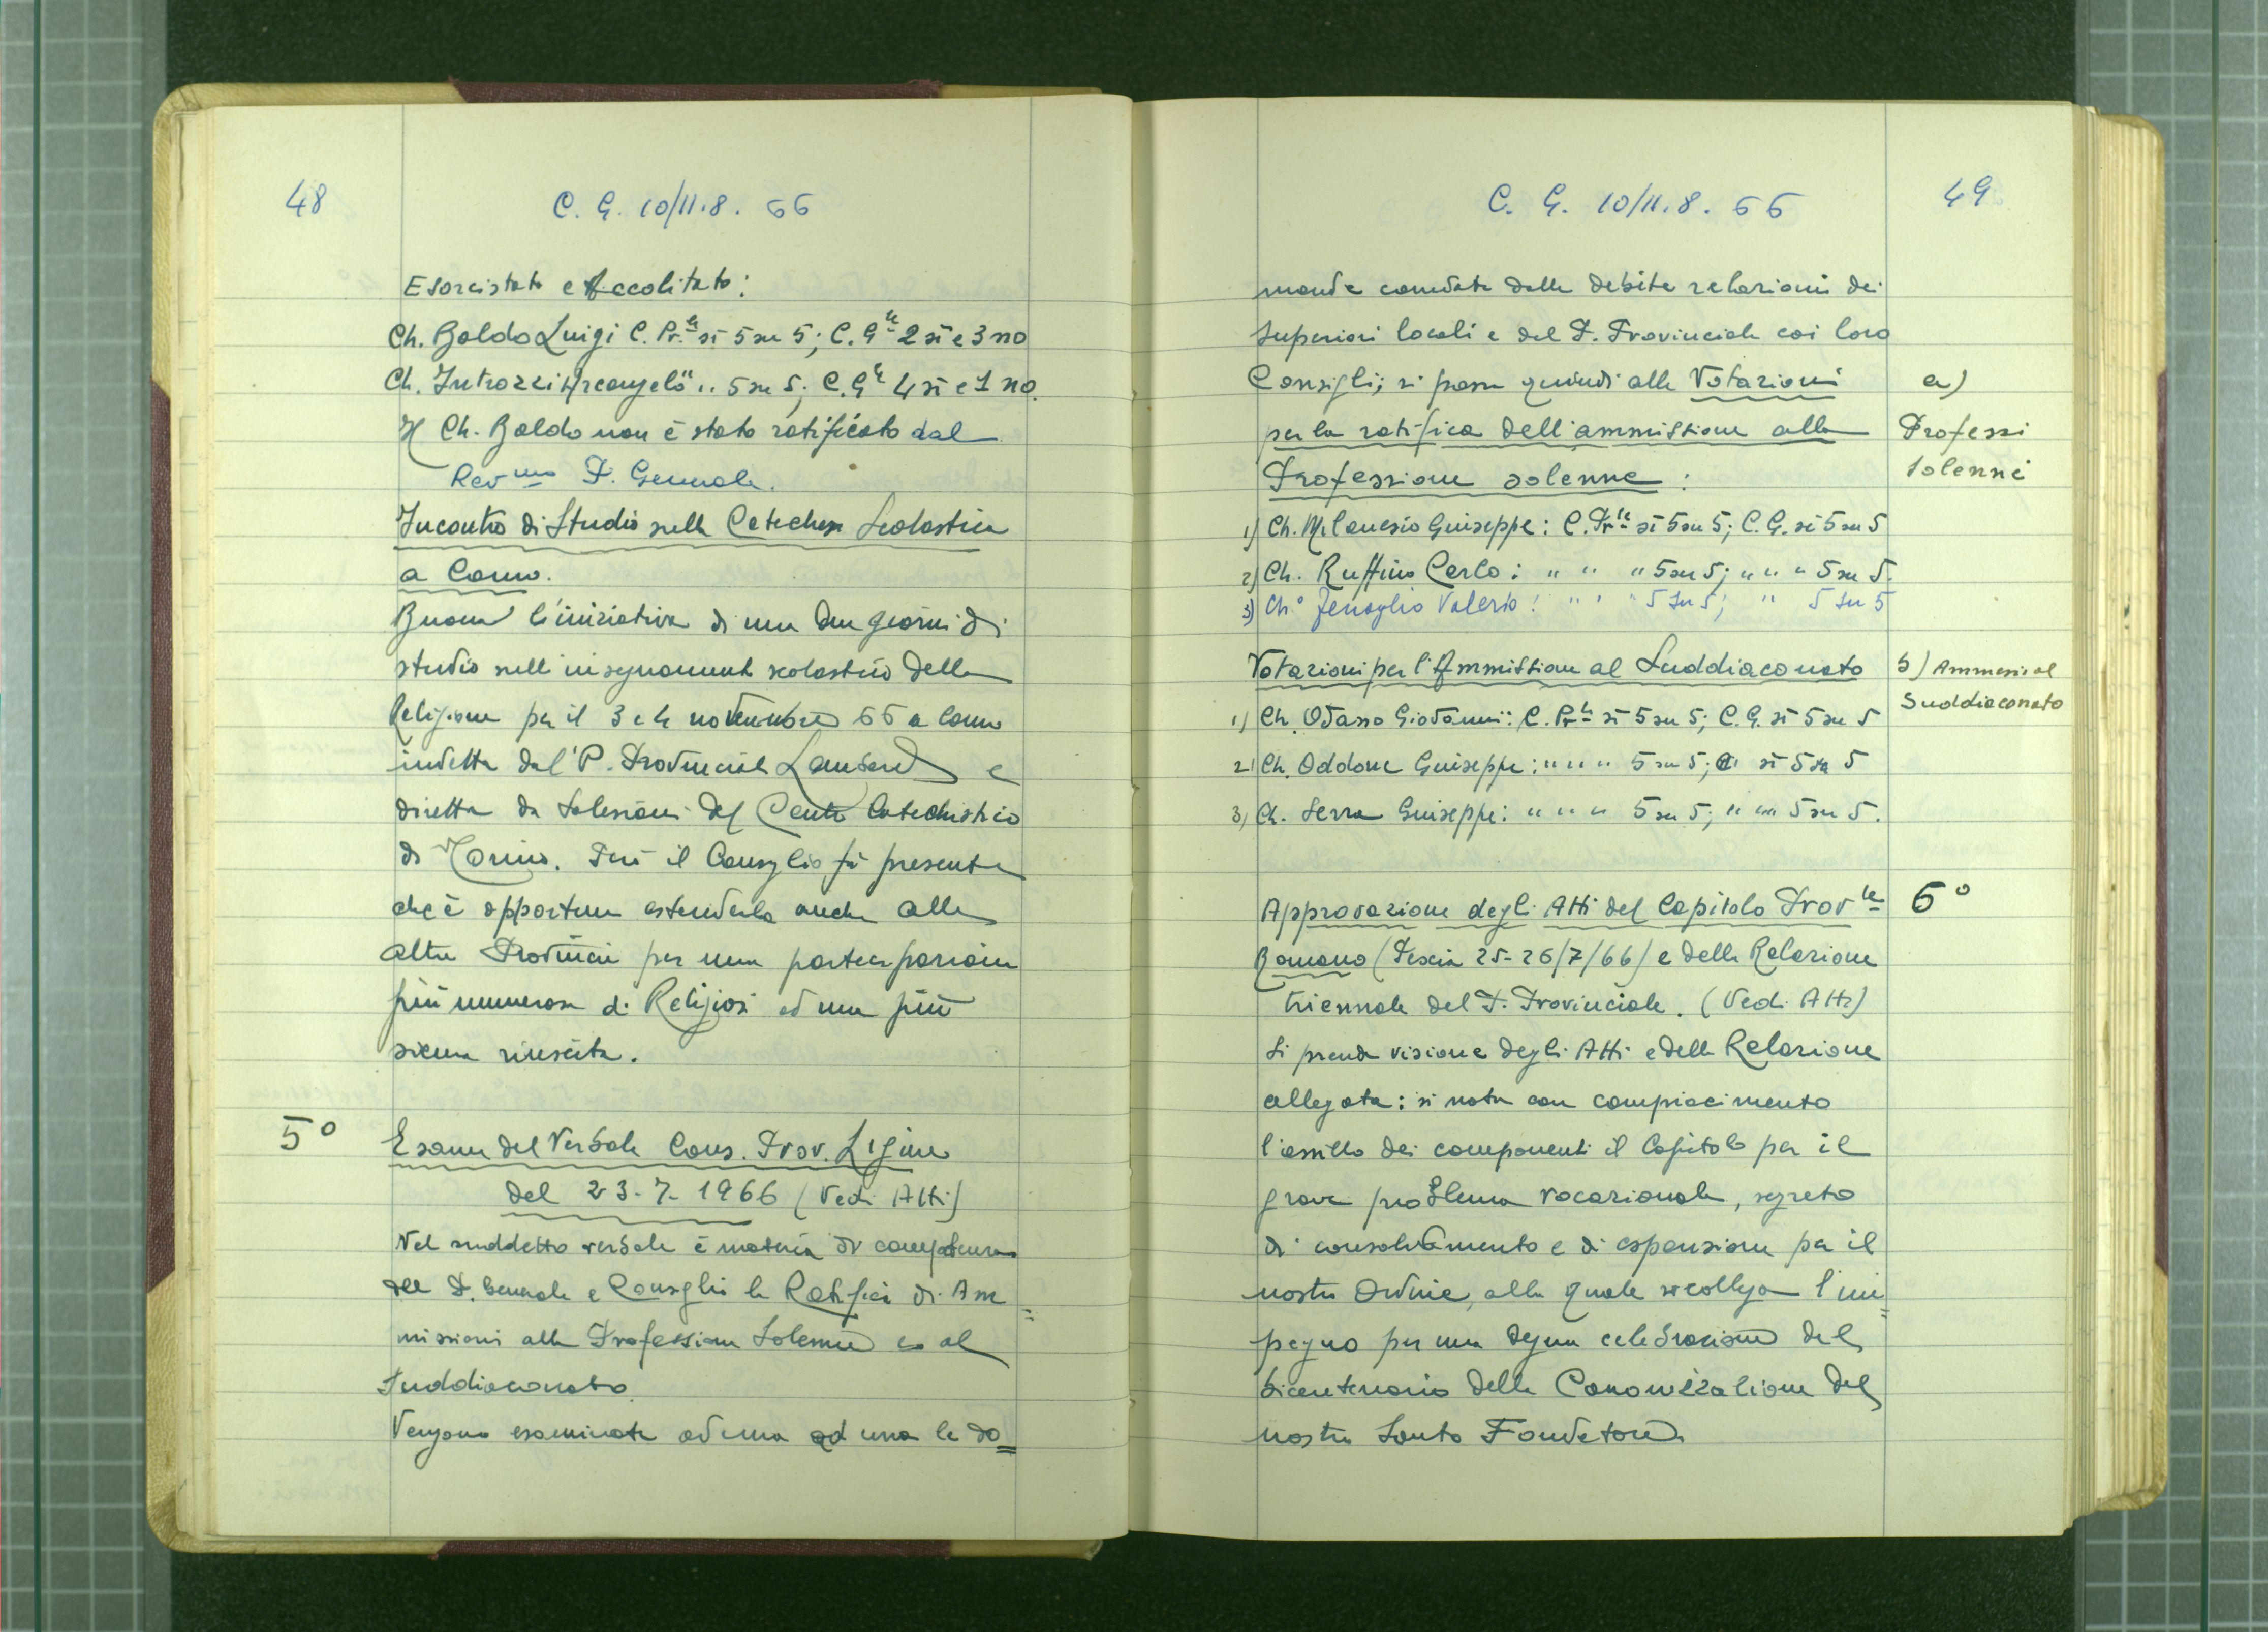 48
C. G. 10/11.8.66
Esorcistato e Accolitato:
Ch. Baldo Luigi C. Pr.le sì 5 su 5; C. G.le 2 sì e 3 no
Ch. Introzzi Arcangelo " .. 5 su 5; C. G.le 4 sì e 1 no.
Il Ch. Baldo non è stato ratificato dal
Rev.mo P. Generale.
Incontro di Studio sulla Catechesi Scolastica
a Como.
Buona l'iniziativa di una due giorni di
studio sull'insegnamento scolastico della
Religione per il 3 e 4 novembre 66 a Como
indetta dal P. Provinciale Lombardo e
diretta da Salesiani del Centro Catechistico
di Torino. Però il Consiglio fa presente
che è opportuno estenderla anche alle
altre Provincie per una partecipazione
più numerosa di Religiosi ed una più
sicura riuscita.
5°
Esame del Verbale Cons. Prov. Ligure
del 23-7-1966 (Vedi Atti)
Nel suddetto verbale è materia di competenza
del P. Generale e Consiglio la Ratifica di Am=
missioni alla Professione Solenne e al
Suddiaconato.
Vengono esaminate ad una ad una le do=
C. G. 10/11.8.66
49
mande corredate dalle debite relazioni dei
Superiori locali e del P. Provinciale coi loro
Consigli; si passa quindi alle Votazioni
per la ratifica dell'ammissione alla
Professione solenne:
a)
Professi
solenni
1) Ch. Milanesio Giuseppe: C. Pr.le sì 5 su 5; C. G. sì 5 su 5
2) Ch. Ruffino Carlo: " " " 5 su 5; " " " 5 su 5.
3) Ch° Fenoglio Valerio: " " " 5 su 5; " 5 su 5
Votazioni per l'Ammissione al Suddiaconato
b) Ammessi al
Suddiaconato
1) Ch. Odasso Giovanni: C. Pr.le sì 5 su 5; C. G. sì 5 su 5
2) Ch. Oddone Giuseppe: " " " 5 su 5; sì 5 su 5
3) Ch. Serra Giuseppe: " " " 5 su 5; " " " 5 su 5.
Approvazione degli Atti del Capitolo Prov.le
6°
Romano (Pescia 25-26/7/66) e della Relazione
triennale del P. Provinciale. (Vedi Atti)
Si prende visione degli Atti e della Relazione
allegata: si nota con compiacimento
l'assillo dei componenti il Capitolo per il
grave problema vocazionale, segreto
di consolidamento e di espansione per il
nostro Ordine, alla quale si collega l'im=
pegno per una degna celebrazione del
bicentenario della Canonizzazione del
nostro Santo Fondatore.